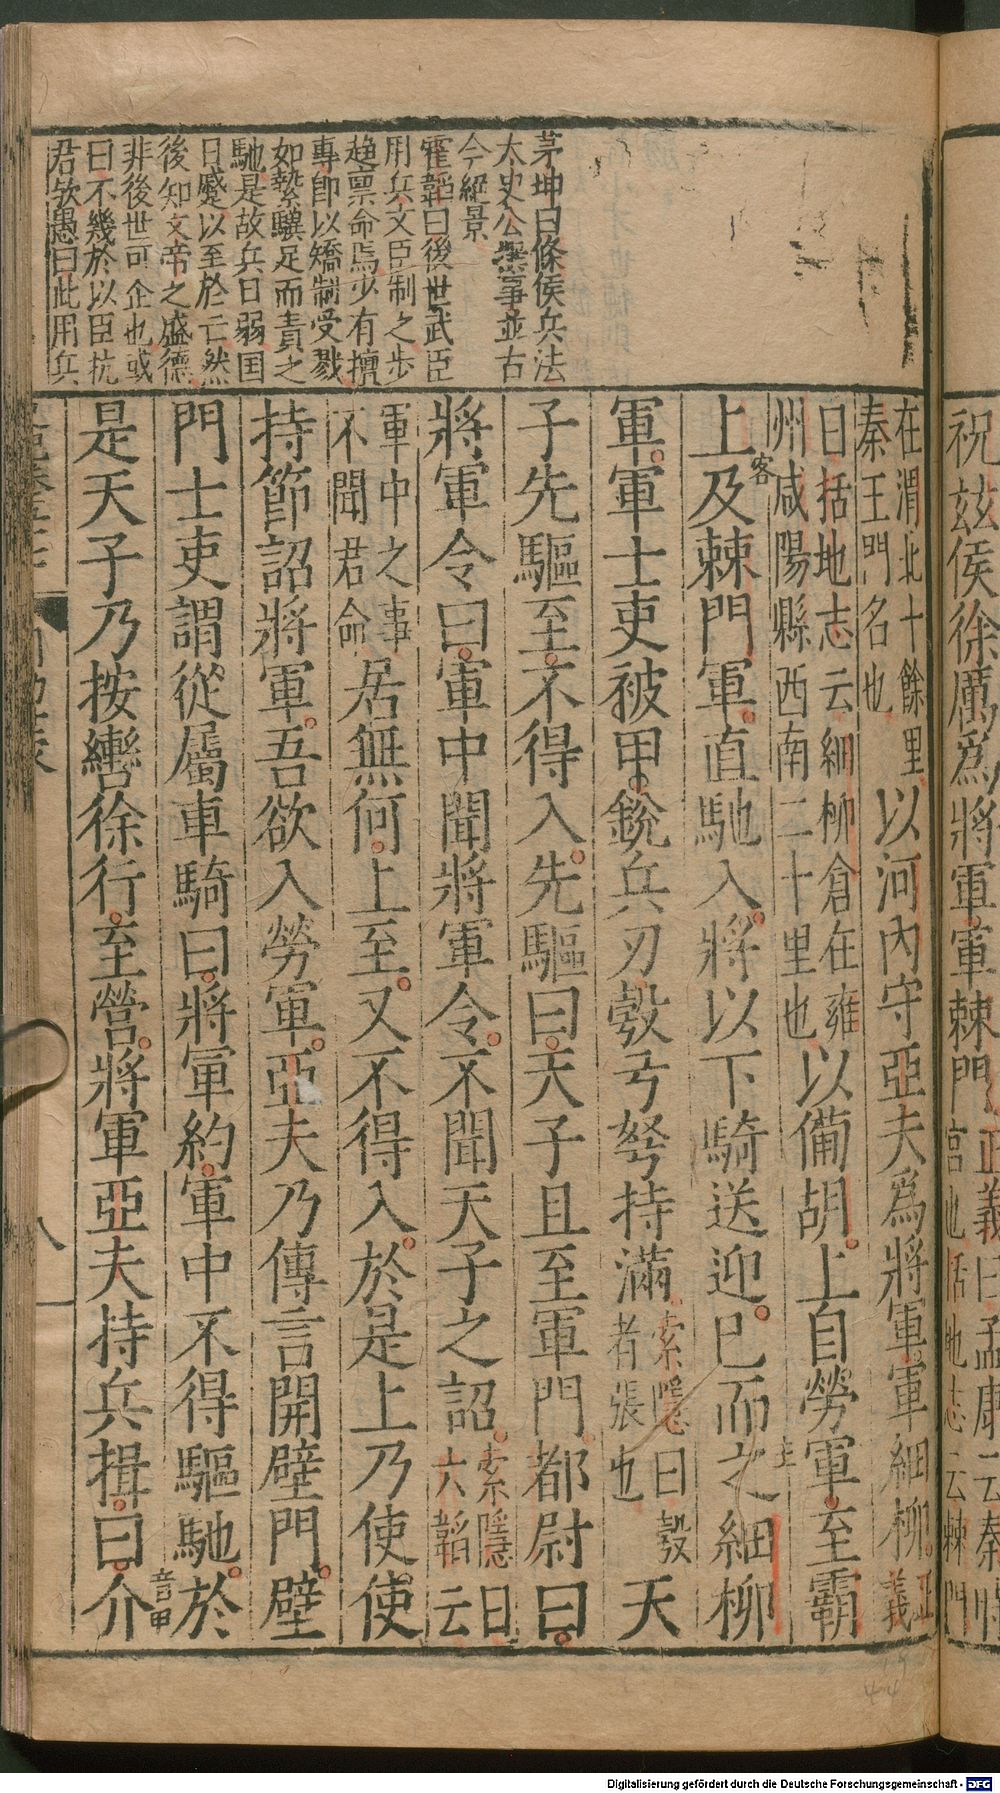 祝玆侯徐厲爲將軍軍棘門
正義曰孟康云秦時
宮也括地志云棘門
在渭北十餘里
秦王門名也
以河內守亞夫爲將軍軍細柳
正
義
曰括地志云細柳倉在雍
州咸陽縣西南二十里也
以備胡上自勞軍至霸
上及棘門軍直馳入將以下騎送迎已而之細柳
軍軍士吏被甲銳兵刃彀弓弩持滿
索隱曰彀
者張也
天
子先驅至不得入先驅曰天子且至軍門都尉曰
將軍令曰軍中聞將軍令不聞天子之詔
索隱曰
六韜云
軍中之事
不聞君命
居無何上至又不得入於是上乃使使
持節詔將軍吾欲入勞軍亞夫乃傳言開壁門壁
門士吏謂從屬車騎曰將軍約軍中不得驅馳於
是天子乃按轡徐行至營將軍亞夫持兵揖曰介
音甲
茅坤曰條侯兵法
太史公撰事並古
今絕景
霍韜曰後世武臣
用兵文臣制之步
趨禀命焉少有擅
專卽以矯制受戮
如縶驥足而責之
馳是故兵日弱国
日蹙以至於亡然
後知文帝之盛德
非後世可企也或
曰不幾於以臣抗
君欤愚曰此用兵
八
Digitalisierung gefördert durch die Deutsche Forschungsgemeinschaft - DFG